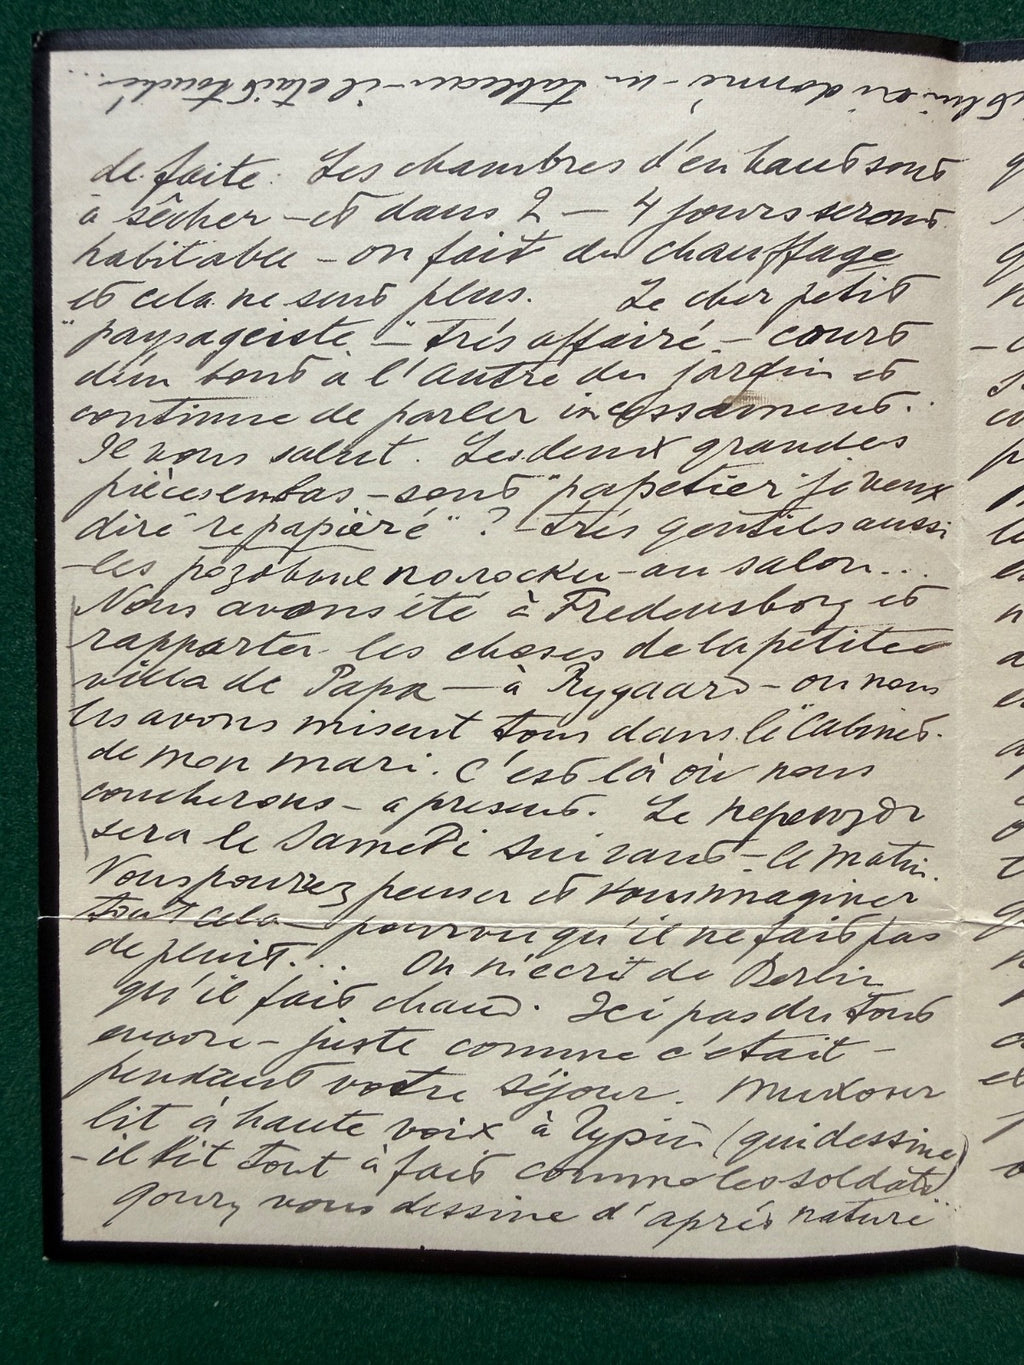 lui ai donné - un tableau - il était touché...
de faite. Les chambres d'en haut sont
à sêcher - et dans 2 - 4 jours seront
habitable - on fait du chauffage
et cela ne sent plus. Le cher petit
"paysageiste" - très affairé - court
d'un bout à l'autre du jardin et
continue de parler incessament.
Il vous salut. Les deux grandes
pièces en bas - sont "papetier" je veux
dire "repapiëré" ? - très gentils aussi
- les розовые полоски - au salon...
Nous avons été à Fredensborg et
rapporter les choses de la petite
villa de Papa - à Rygaard - où nous
les avons misent tous dans le "Cabinet"
de mon mari. C'est là où nous
coucherons - a present. Le переѣздъ
sera le Samedi suivant - le matin.
Vous pourrez penser et vous imaginer
tout cela - pourvu qu'il ne fait pas
de pluit... On m'écrit de Berlin
qu'il fait chaud. Ici pas du tout
encore - juste comme c'etait -
pendant votre séjour. Тихонъ
lit à haute voix à Гурій (qui dessine)
- il lit tout à fait comme les soldats
Goury vous dessine d'après nature